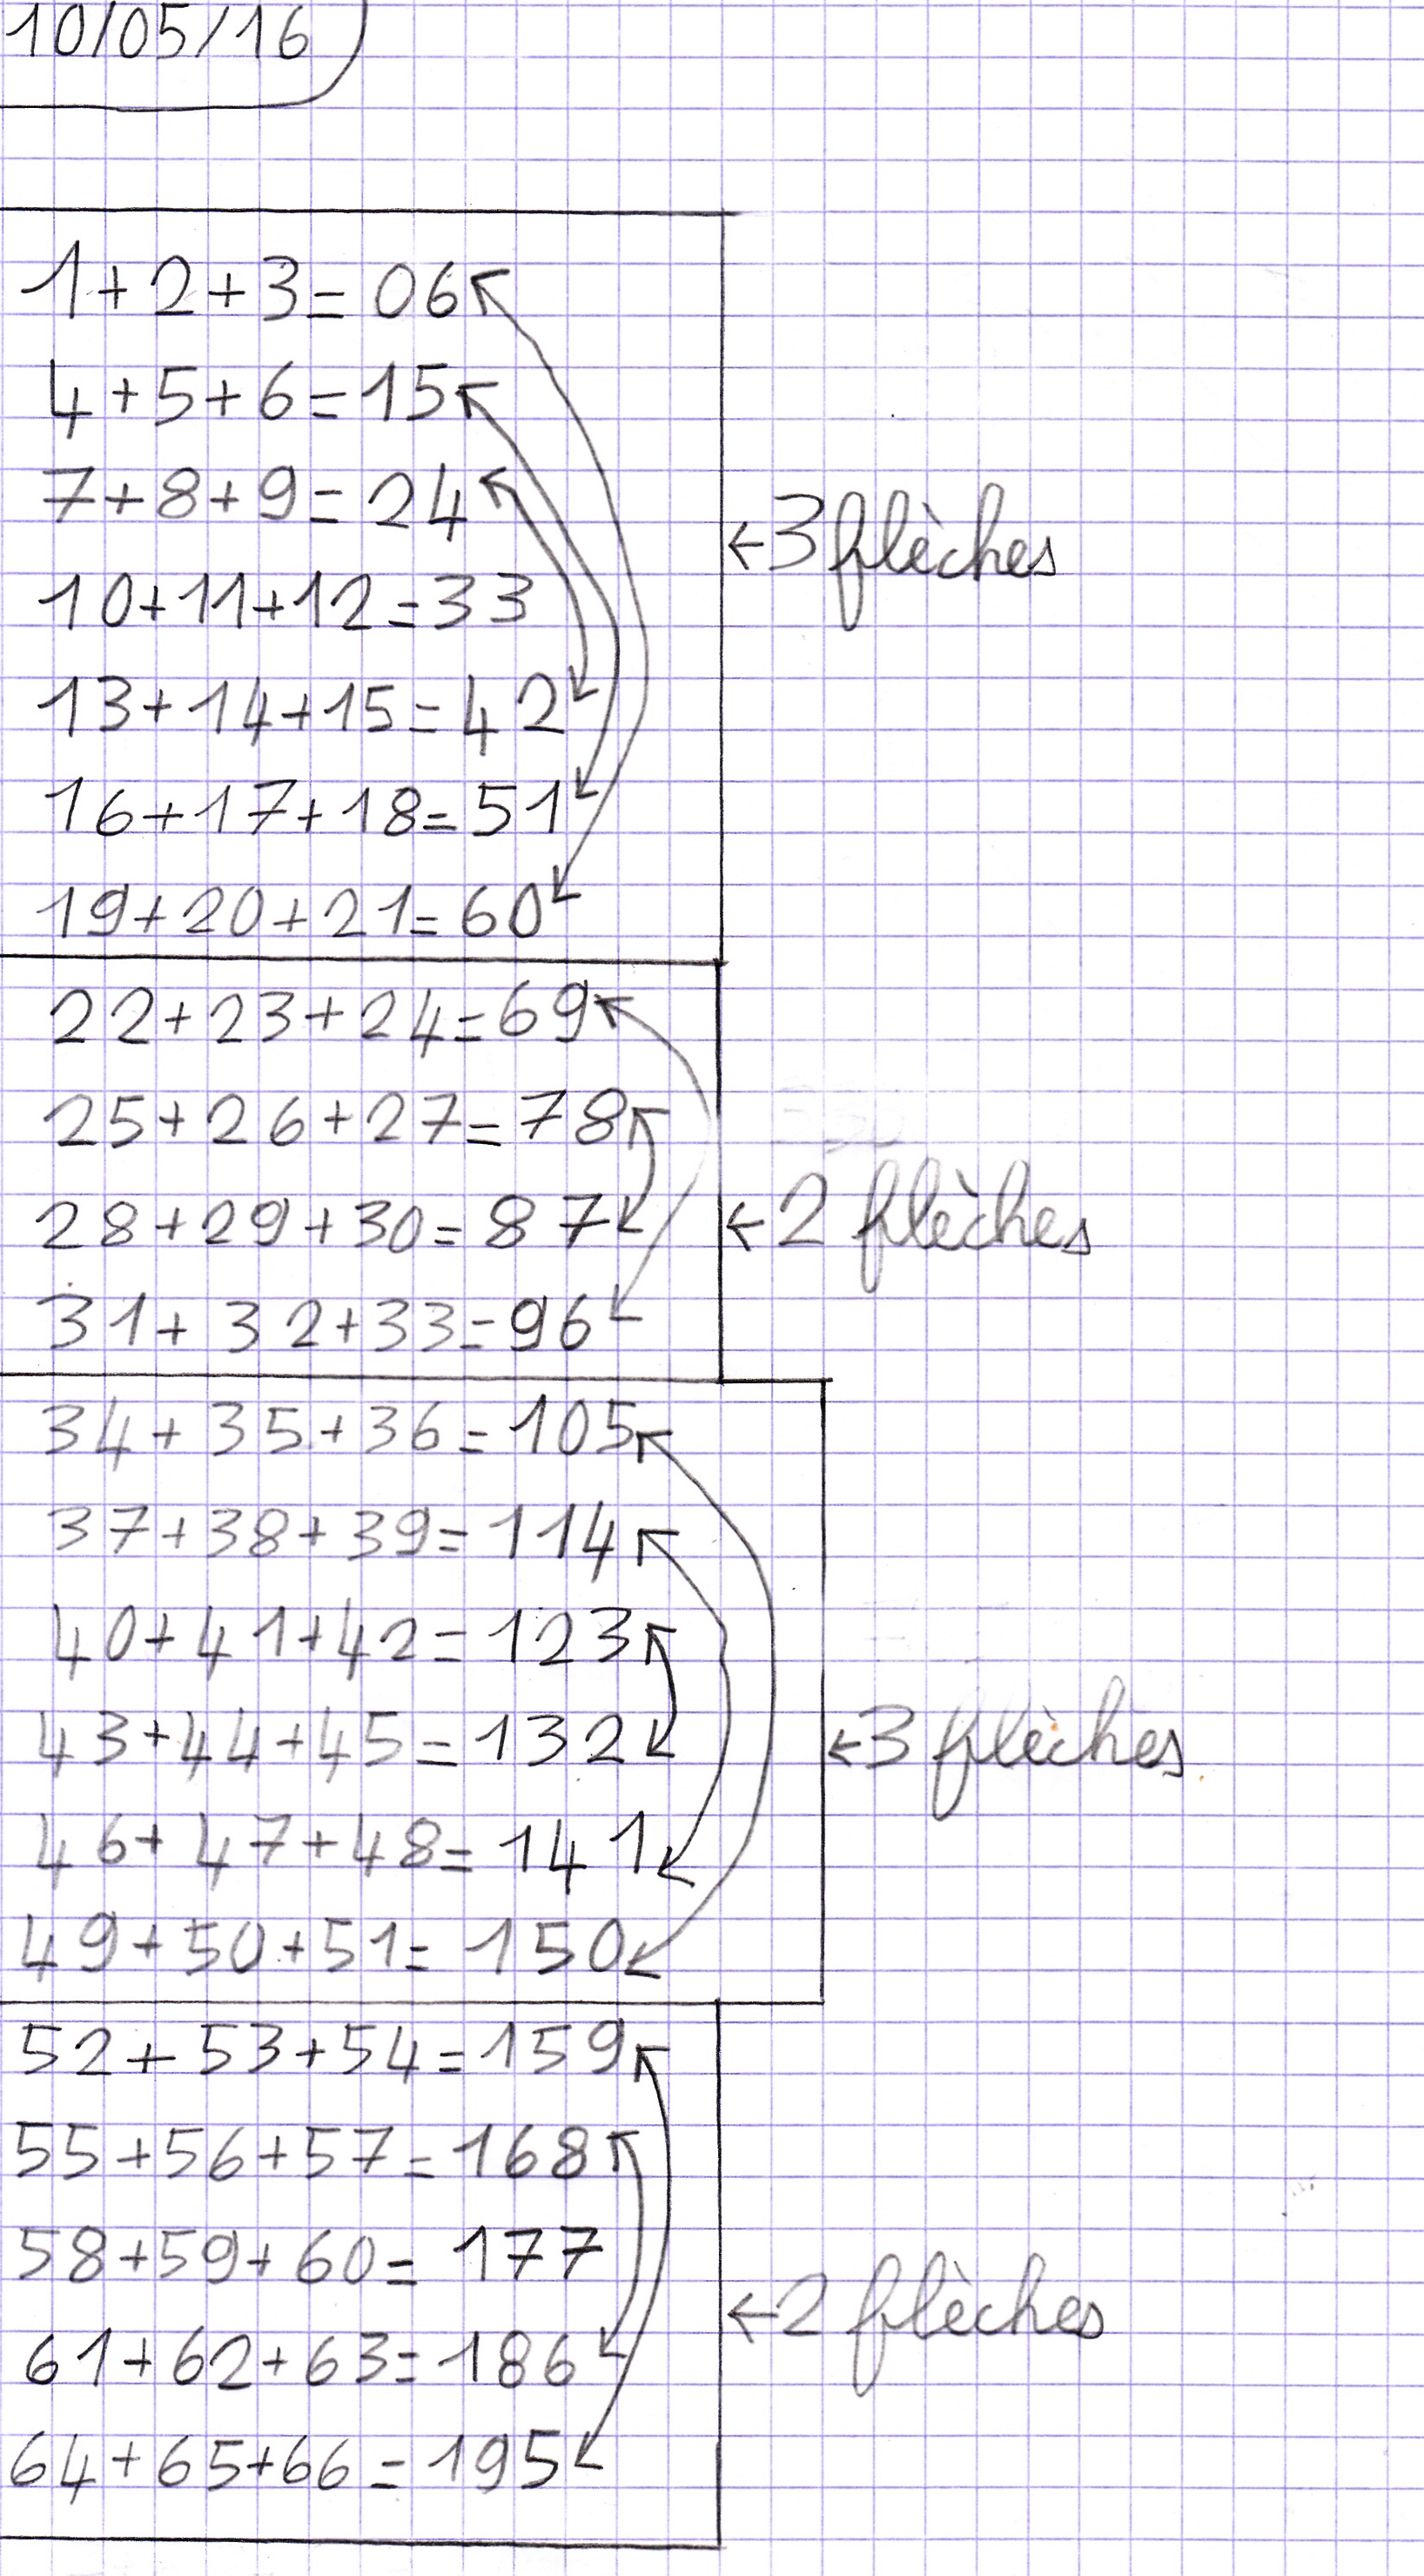 10/05/16
1+2+3=06
4+5+6=15
7+8+9=24
←3 flèches
10+11+12=33
13+14+15=42
16+17+18=51
19+20+21=60
22+23+24=69
25+26+27=78
28+29+30=87
←2 flèches
31+32+33=96
34+35+36=105
37+38+39=114
40+41+42=123
43+44+45=132
←3 flèches
46+47+48=141
49+50+51=150
52+53+54=159
55+56+57=168
58+59+60=177
←2 flèches
61+62+63=186
64+65+66=195